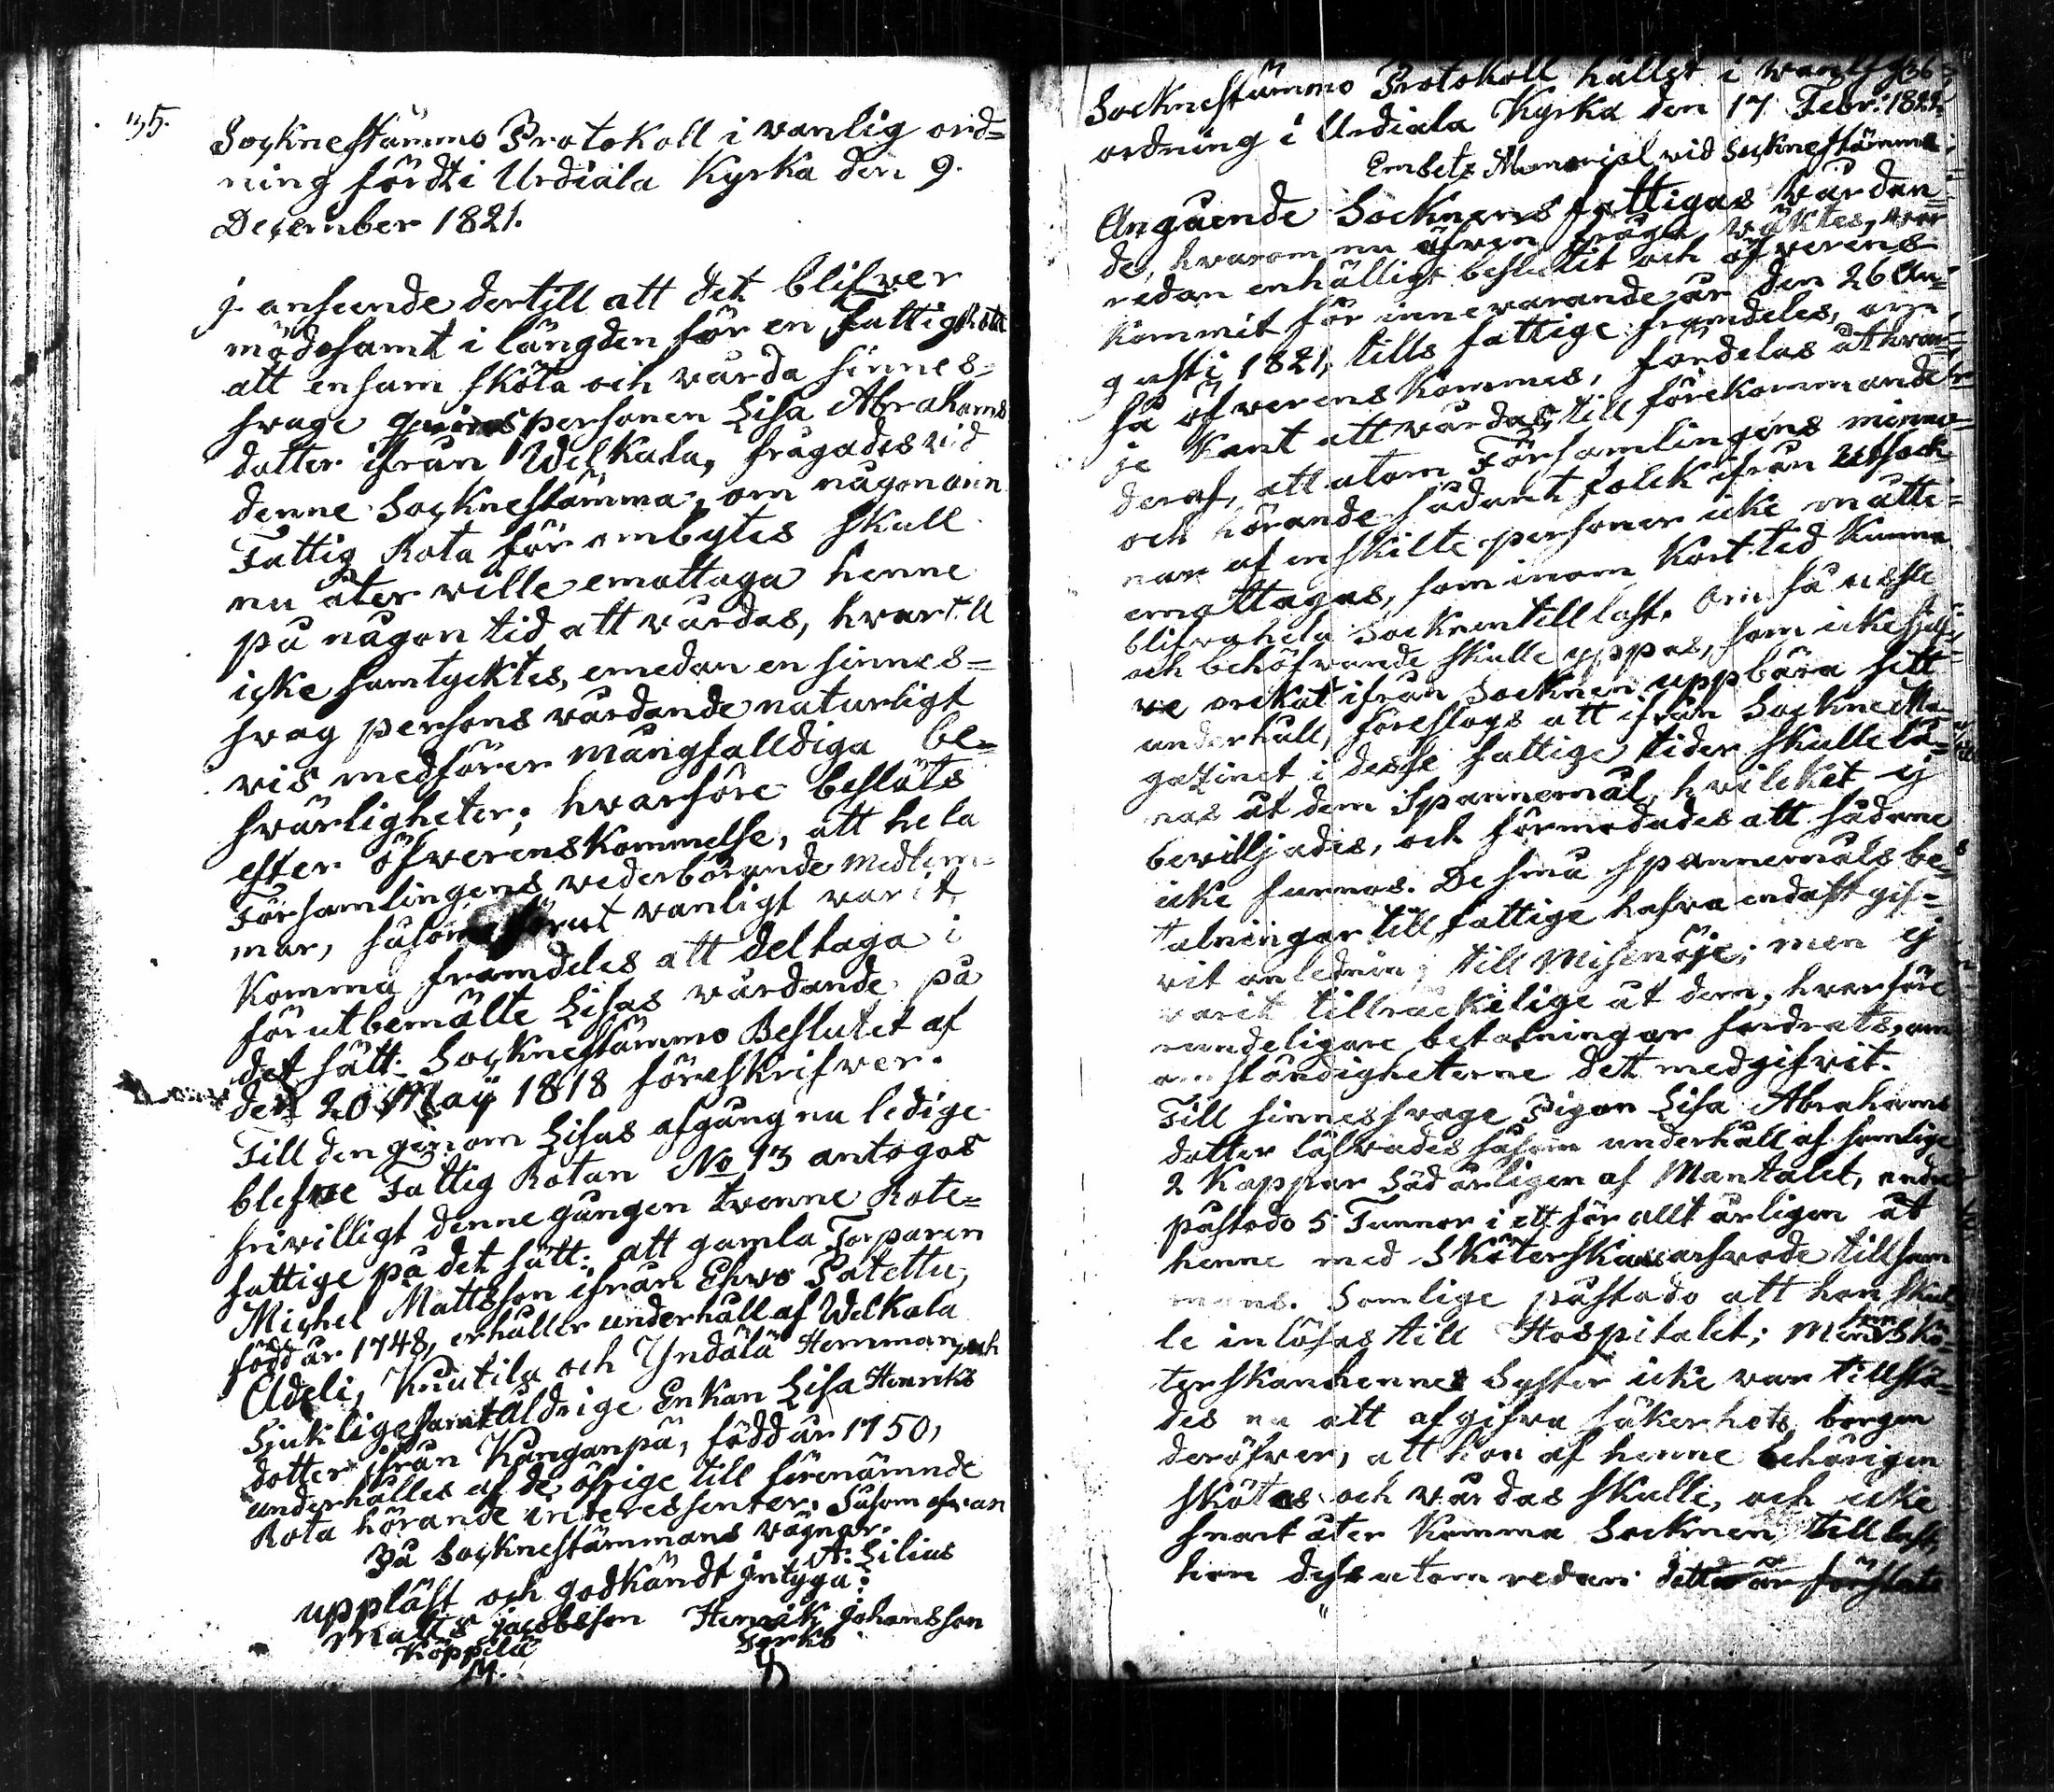 35.
Socknestämmo Protokoll i vanlig ord=
ning fördt i Urdiala Kyrka den 9.
December 1821.
J anseende dertill att det blifver
mödosamt i längden för en Fattig Rota
att ensam sköta och vårda sinnes=
svage qvinspersonen Lisa Abrahams
dotter ifrån Welkala, frågades vid
denne Socknestämma, om någon ann
Fattig Rota för ombytes skull
nu åter ville emottaga henne
på någon tid att vårdas, hvartill
icke samtycktes, emedan en sinnes=
svag persons vårdande naturligt
vis medförer mångfalldiga be=
svärligheter; hvarföre beslöts
efter öfverenskommelse, att hela
Församlingens vederbörande medlem=
mar, såsom förut vanligt varit,
komma framdeles att deltaga i
förutbemälte Lisas vårdande på
det sätt Socknestämmo Beslutet af
den 20 Maÿ 1818 föreskrifver.
Till den genom Lisas afgång nu ledige
blefne Fattig Rotan No 13 antogos
frivilligt denne gången tvenne Rote=
fattige på det sätt: att gamla Torparen
Michel Mattsson ifrån Ehro Patettu,
född år 1748, erhåller underhåll af Welkala
Uddeli, Knutila och Yndälä Hemman, och
Sjukliga samt åldrige Enkan Lisa Henriks
dotter ifrån Kanganpä, född år 1750,
underhålles af de öfrige till förenämnde
Rota hörande interessenter. Såsom ofvan
På Socknestämmans vägnar.
A. Lilius
uppläst och godkändt intyga:
Matts Jacobsson Henrik Johansson
Köppilä Yrkö
36
Socknestämmo Protokoll hållet i vanlig
ordning i Urdiala Kyrka den 17 Febr. 1822
Embets Memorial vid Socknestämma
Angående Socknens fattigas vårdan=
de, hvarom nu äfven fråga väktes, var
redan enhälligt beslutit och öfverens
kommit för innevarande år den 26 Au=
gusti 1821, tills fattige framdeles, om
så öfverenskommes, fördelas åt hvar=
je kant att vårdas, till förekommande
deraf, att utom Församlingens minne
och hörande sådant folk ifrån utsock
nar af enskilte personer icke måtte
emottagas, som inom kort tid kunna
blifva hela Socknen till last. Om så usle
och behöfvande skulle yppas, som icke sjelf=
ve orkat ifrån Socknen uppbära sitt
underhåll, föreslogs att ifrån Sockne Ma=
gazinet i desse fattige tider skulle lå=
nas åt dem Spannemål, hvilcket ej
bevilljades, och förmodades att sådane
icke funnos. De små spannemåls be=
talningar till fattige hafva endast gif=
vit anledning till Missnöje; men ej
varit tillräckelige åt dem, hvarföre
ändeligare betalningar fordrats, om
omständigheterne det medgifvit.
Till sinnessvage Pigan Lisa Abrahams
dotter låfvades såsom underhåll af somlige
2 Kappar Säd årligen af Mantalet, andre
påstodo 5 Tunnor i ett för allt årligen åt
henne med Sköterskans arfvode tillsam
mans. Somlige påstodo att hon skul=
le inlösas till Hospitalet; Men som Skö=
terskan hennes Syster icke var tillstä=
des nu att afgifva säkerhets borgen
deröfver, att hon af henne behörigen
skötas och vårdas skulle, och icke
snart åter komma Socknen till last,
hon dessutom redan detta år